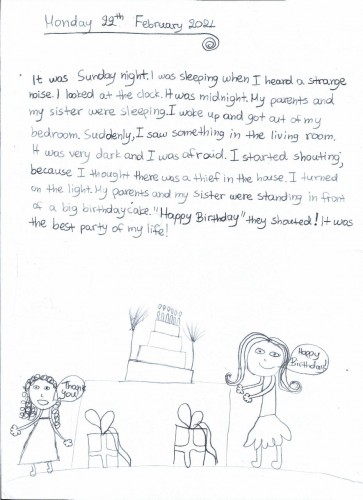 Monday 22th February 2021
It was Sunday night. I was sleeping when I heard a strange
noise. I looked at the clock. It was midnight. My parents and
my sister were sleeping. I woke up and got out of my
bedroom. Suddenly, I saw something in the living room.
It was very dark and I was afraid. I started shouting,
because I thought there was a thief in the house. I turned
on the light. My parents and my sister were standing in front
of a big birthday cake. "Happy Birthday" they shouted! It was
the best party of my life!
Happy
Birthday!
Thank
you!